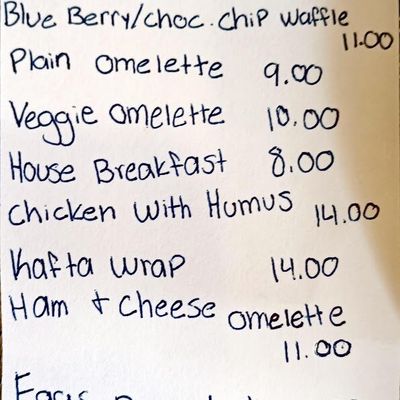 Blue Berry/choc. chip waffle
11.00
Plain omelette 9.00
Veggie omelette 10.00
House Breakfast 8.00
Chicken with Humus 14.00
Kafta wrap 14.00
Ham + cheese omelette
11.00